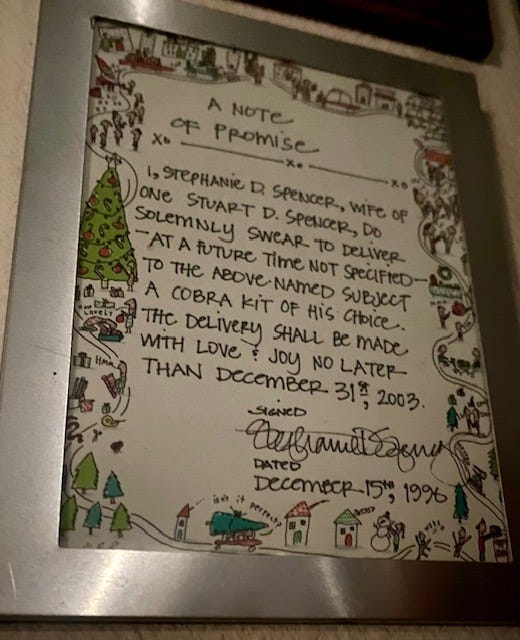 A NOTE
OF PROMISE
XO XO XO
I, STEPHANIE D. SPENCER, WIFE OF
ONE STUART D. SPENCER, DO
SOLEMNLY SWEAR TO DELIVER
—AT A FUTURE TIME NOT SPECIFIED—
TO THE ABOVE-NAMED SUBJECT
A COBRA KIT OF HIS CHOICE.
THE DELIVERY SHALL BE MADE
WITH LOVE & JOY NO LATER
THAN DECEMBER 31ST, 2003.
SIGNED
Stephanie D Spencer
DATED
DECEMBER 15TH, 1996
LOVELY
HMM
isn't it perfect?